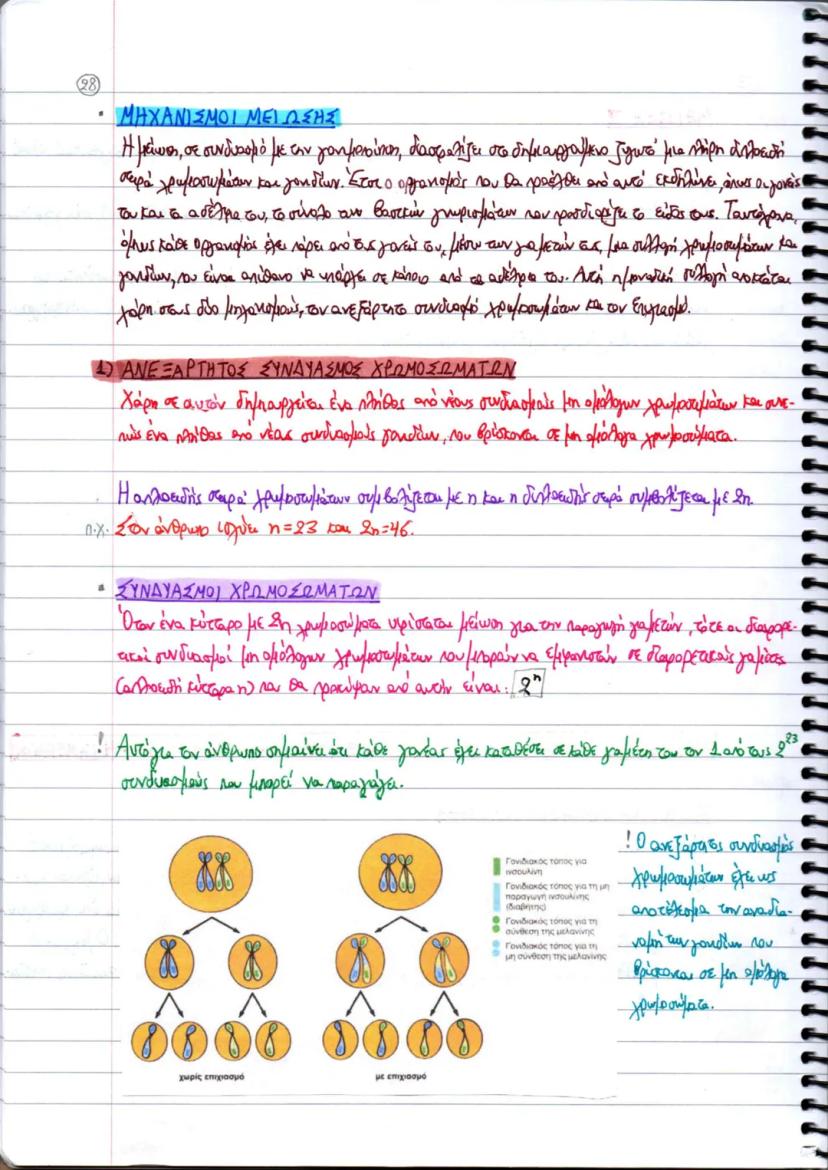 28
ΜΗΧΑΝΙΣΜΟΙ ΜΕΙΩΣΗΣ
Η μείωση, σε συνδυασμό με την γονιμοποίηση, διασφαλίζει στο δημιουργούμενο ζυγωτό μια πλήρη διπλοειδή
σειρά χρωμοσωμάτων και γονιδίων. Έτσι ο οργανισμός που θα προέλθει από αυτό εκδηλώνει, όπως οι γονείς
του και τα αδέλφια του, το σύνολο των βασικών γνωρισμάτων που προσδιορίζει το είδος τους. Ταυτόχρονα,
όμως κάθε οργανισμός έχει πάρει από τους γονείς του, μέσω των γαμετών τους, μια συλλογή χρωμοσωμάτων και
γονιδίων, που είναι απίθανο να υπάρχει σε κάποιο από τα αδέλφια του. Αυτή η μοναδική συλλογή αποκτάται
χάρη στους δύο μηχανισμούς, τον ανεξάρτητο συνδυασμό χρωμοσωμάτων και τον επιχιασμό.
1) ΑΝΕΞΑΡΤΗΤΟΣ ΣΥΝΔΥΑΣΜΟΣ ΧΡΩΜΟΣΩΜΑΤΩΝ
Χάρη σε αυτόν δημιουργείται ένα πλήθος από νέους συνδυασμούς μη ομόλογων χρωμοσωμάτων και συνε-
πώς ένα πλήθος από νέους συνδυασμούς γονιδίων, που βρίσκονται σε μη ομόλογα χρωμοσώματα.
Η απλοειδής σειρά χρωμοσωμάτων συμβολίζεται με n και η διπλοειδής σειρά συμβολίζεται με 2n.
π.χ. Στον άνθρωπο ισχύει n=23 και 2n=46.
ΣΥΝΔΥΑΣΜΟΙ ΧΡΩΜΟΣΩΜΑΤΩΝ
Όταν ένα κύτταρο με 2n χρωμοσώματα υφίσταται μείωση για την παραγωγή γαμετών, τότε οι διαφορε-
τικοί συνδυασμοί μη ομόλογων χρωμοσωμάτων που μπορούν να εμφανιστούν σε διαφορετικούς γαμέτες
(απλοειδή κύτταρα n) που θα προκύψουν από αυτήν είναι: 2ⁿ
! Αυτό για τον άνθρωπο σημαίνει ότι κάθε γονέας έχει καταθέσει σε κάθε γαμέτη του τον 1 από τους 2²³
συνδυασμούς που μπορεί να παραγάγει.
Γονιδιακός τόπος για
ινσουλίνη
Γονιδιακός τόπος για τη μη
παραγωγή ινσουλίνης
(διαβήτης)
Γονιδιακός τόπος για τη
σύνθεση της μελανίνης
Γονιδιακός τόπος για τη
μη σύνθεση της μελανίνης
χωρίς επιχιασμό
με επιχιασμό
! Ο ανεξάρτητος συνδυασμός
χρωμοσωμάτων έχει ως
αποτέλεσμα την αναδια-
νομή των γονιδίων που
βρίσκονται σε μη ομόλογα
χρωμοσώματα.